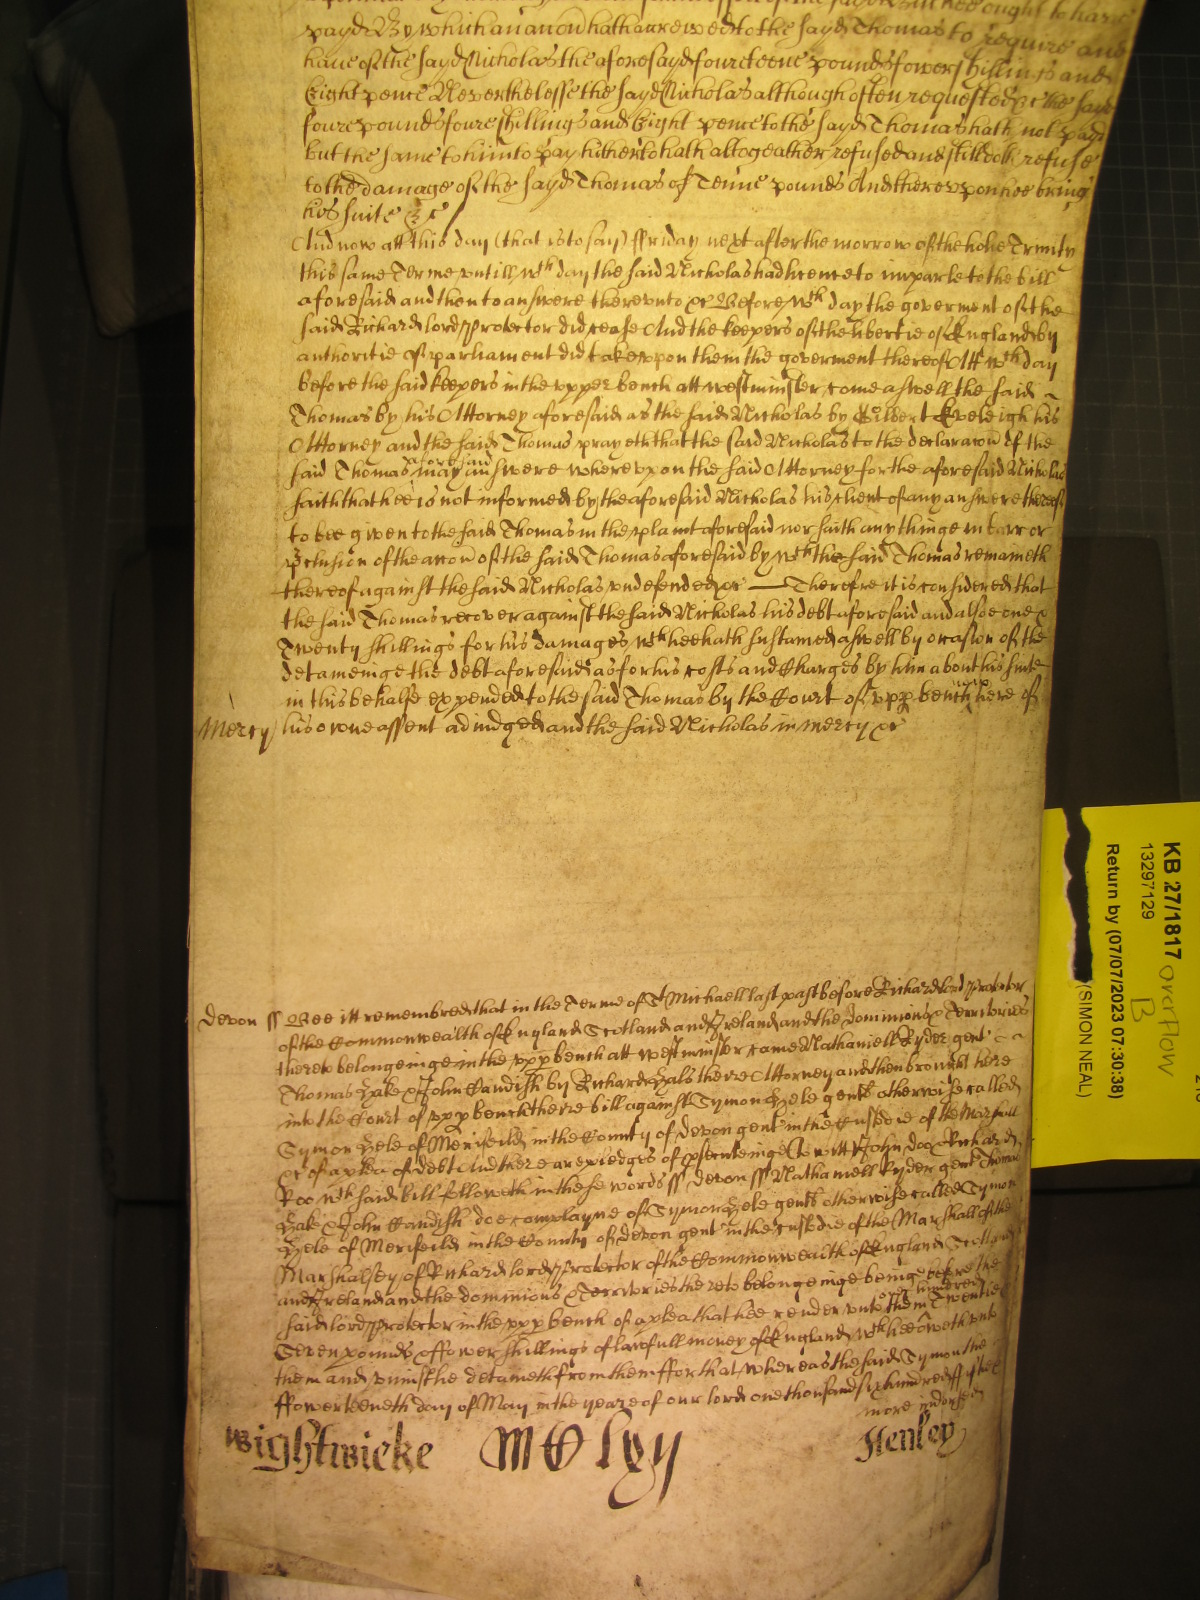 payd By which an accon hath accrewed to the sayd Thomas to require and
have of the sayd Nicholas the aforesayd fourteene pounds fower shillings and
Eight pence Neverthelesse the sayd Nicholas although often requested &c the sayd
foure pounds foure shillings and Eight pence to the sayd Thomas hath not payd
but the same to him to pay hitherto hath altogeather refused and still doth refuse
to the damage of the sayd Thomas of Tenne pounds And thereupon hee bring
his suite &c
And now att this day (that is to say) ffriday next after the morrow of the holie Trinity
this same Terme untill wch day the said Nicholas had licence to imparle to the bill
aforesaid and then to answere thereunto &c Before wch day the goverment of the
said Richard lord Protector did cease And the keepers of the libertie of England by
authoritie of parliament did take upon them the goverment thereof Att wch day
before the said keepers in the upper bench att westminster come aswell the said
Thomas by his Attorney aforesaid as the said Nicholas by Gilbert Eveleigh his
Attorney and the said Thomas prayeth that the said Nicholas to the declaracon of the
said Thomas aforesaid may answere whereupon the said Attorney for the aforesaid Nicholas
saith that hee is not informed by the aforesaid Nicholas his client of any answere thereof
to bee given to the said Thomas in the plaint aforesaid nor saith any thinge in barr or
pclusion of the accon of the said Thomas aforesaid by wch the said Thomas remaineth
thereof against the said Nicholas undefended &c — Therefore it is considered that
the said Thomas recover against the said Nicholas his debt aforesaid and alsoe one &
Twenty shillings for his damages wch hee hath sustained aswell by occasion of the
detameinge the debt aforesaid as for his costs and Charges by him about his suite
in this behalfe expended to the said Thomas by the Court of upp bench here of
Mercy his owne assent adiudged and the said Nicholas in mercy &c
Devon ss Bee itt remembred that in the Terme of St Michaell last past before Richard lord Protector
of the Commonwealth of England Scotland and Ireland and the dominions & Territories
thereto belongeinge in the upp bench att westminster came Nathaniell Ryder gent
Thomas Zake & John Candish by Richard Hals there Attorney and then brought here
into the Court of upp bench there bill against Symon Hele gent otherwise called
Symon Hele of Merifeild in the County of devon gent in the Custodie of the Marshall
&c of a plea of debt And there are pledges of psecuteinge to witt John doo & Richard
Roo wch said bill followeth in these words ss devon ss Nathaniell Ryder gent Thomas
Zake & John Candish doe complayne of Symon Hele gent otherwise called Symon
Hele of Merifeild in the County of devon gent in the custodie of the Marshall of the
Marshalsey of Richard lord Protector of the Commonwealth of England Scotland
and Ireland and the dominions & Territories thereto belongeinge being before the
said lord Protector in the upp bench of a plea that hee render unto them one hundred Twentie
Seven pounds & ffower shillings of lawfull money of England wch hee oweth unto
them and uniustlie detaineth from them ffor that whereas the said Symon the
ffowerteeneth day of May in the yeare of our lord one thousand six hundred ffiftie
more indorsed
Wightwicke
Henley
KB 27/1817 overflow
B
13297129
Return by (07/07/2023 07:30:38)
(SIMON NEAL)